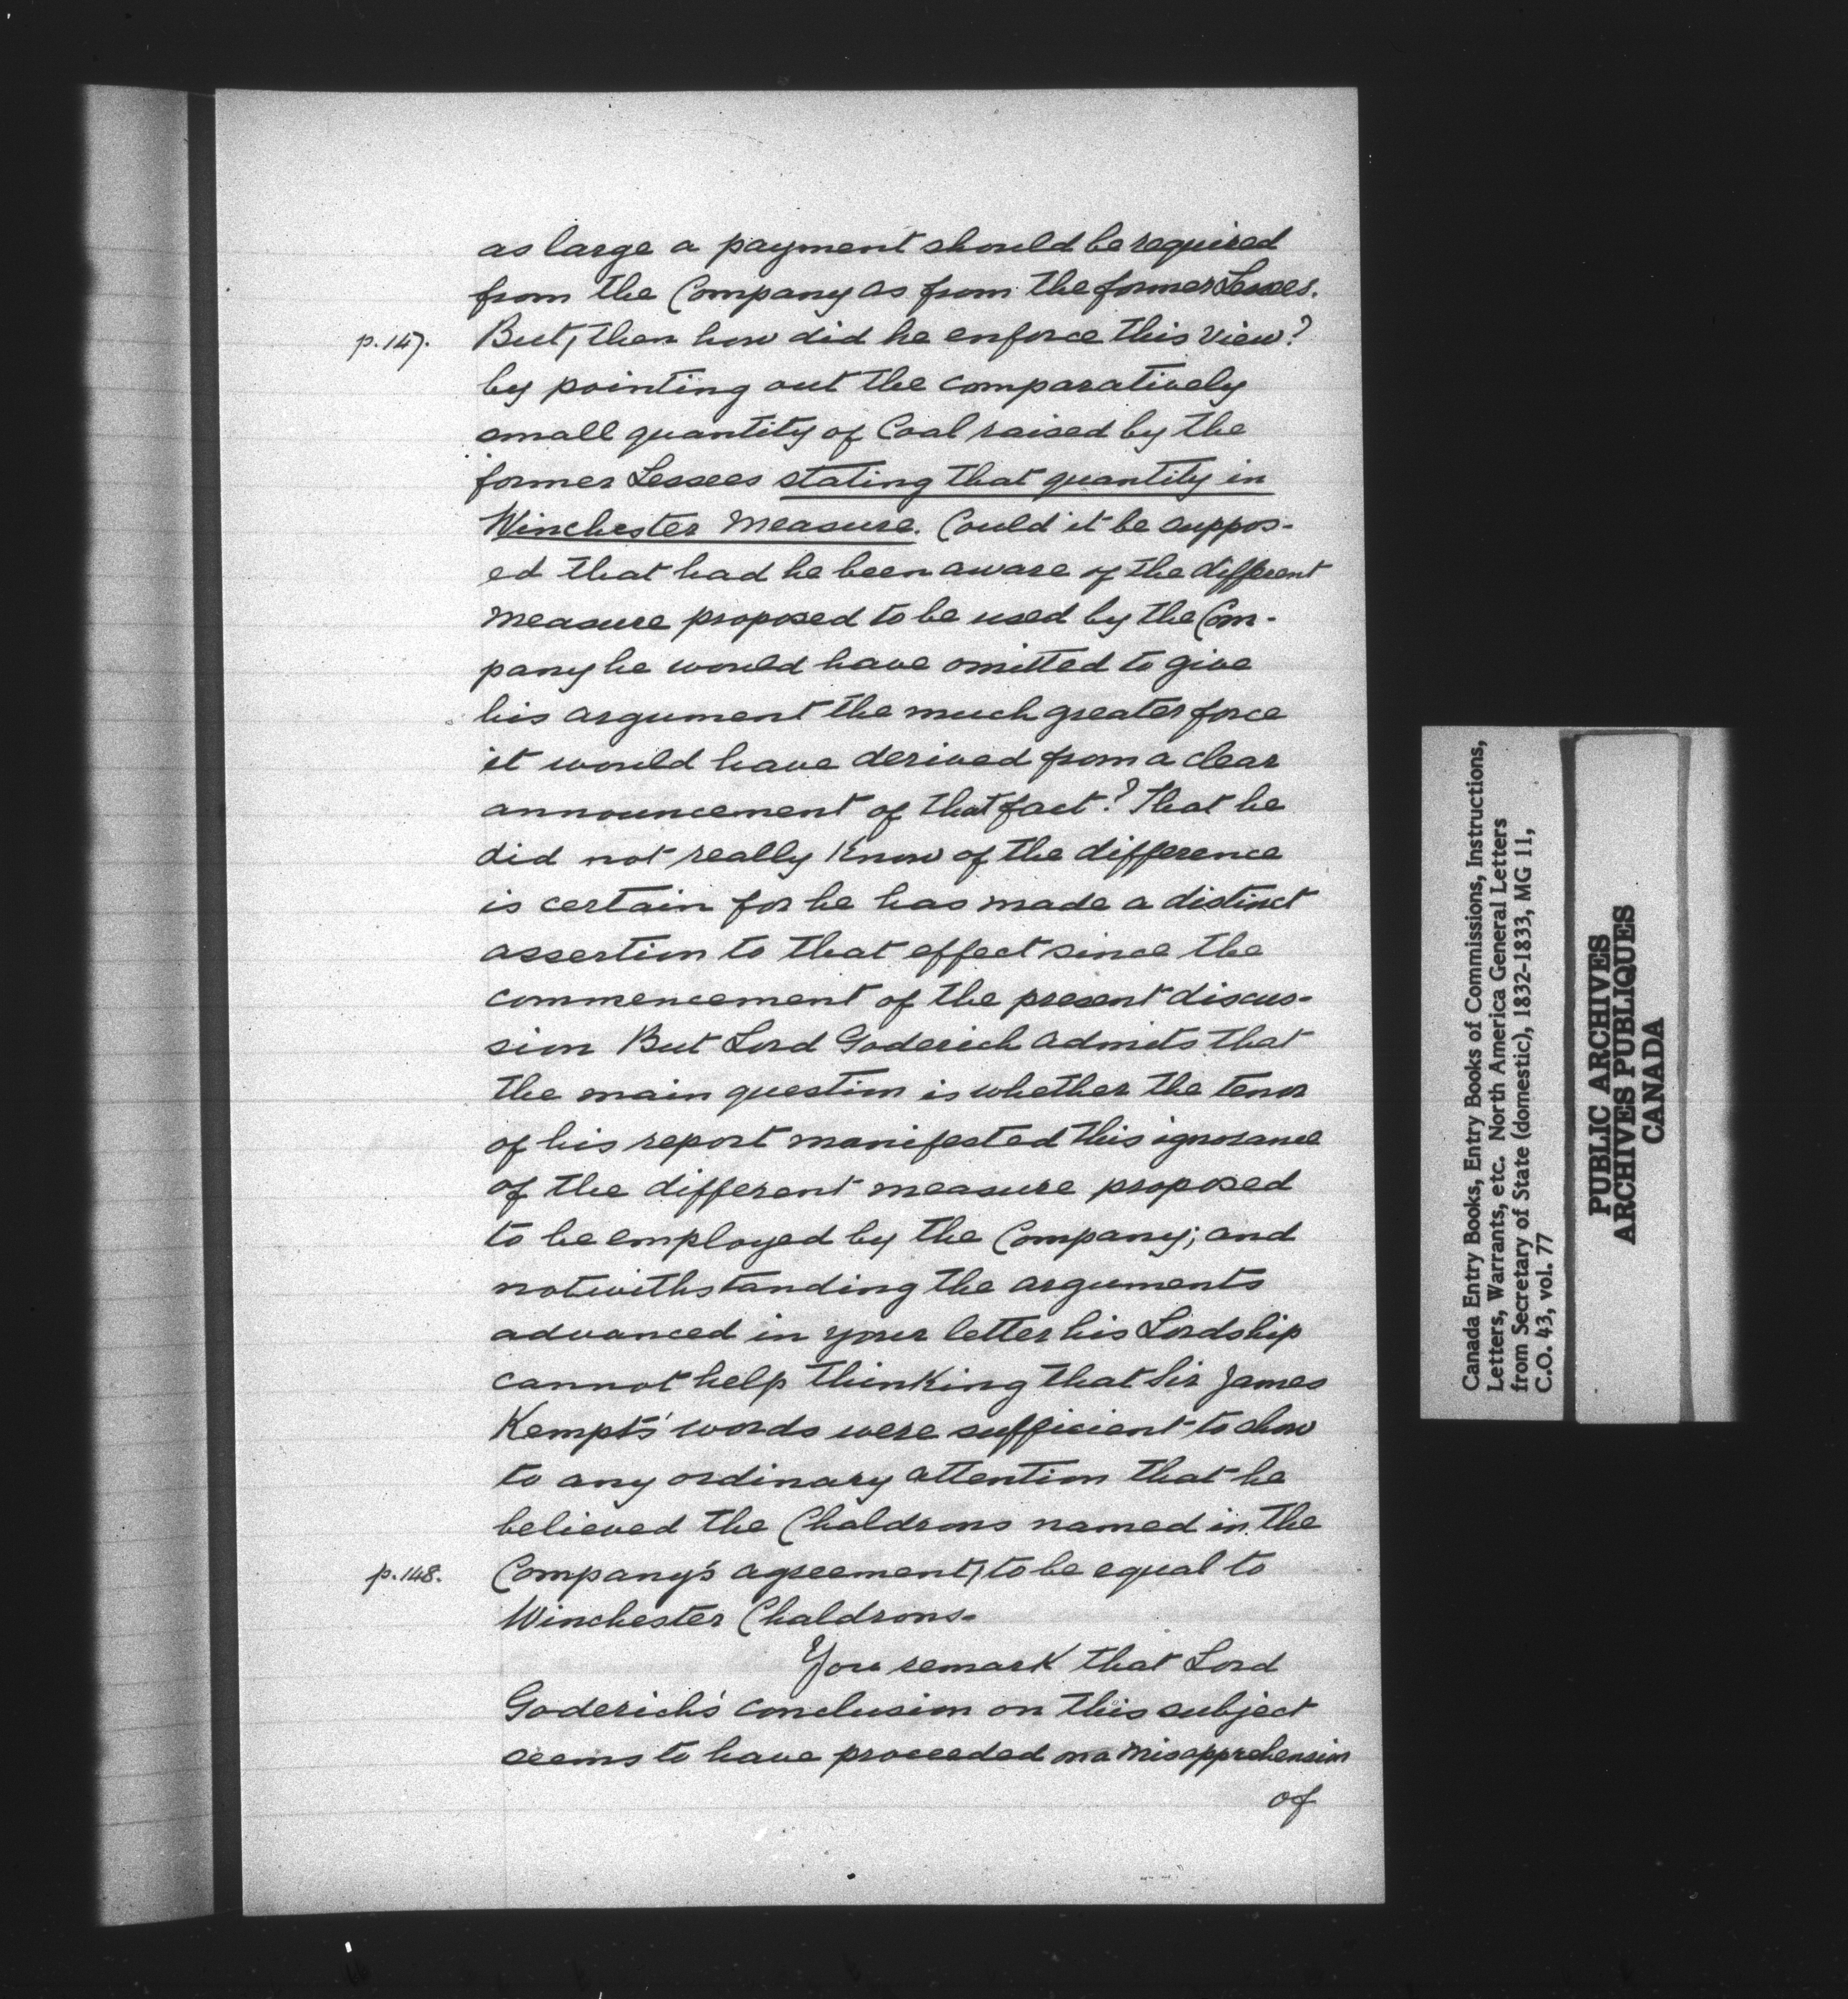 as large a payment should be required
from the Company as from the former Lessees.
p. 147.
But, then how did he enforce this view?
by pointing out the comparatively
small quantity of Coal raised by the
former Lessees stating that quantity in
Winchester Measure. Could it be suppos-
ed that had he been aware of the different
measure proposed to be used by the Com-
pany he would have omitted to give
his argument the much greater force
it would have derived from a clear
announcement of that fact? That he
did not really know of the difference
is certain for he has made a distinct
assertion to that effect since the
commencement of the present discus-
sion But Lord Goderich admits that
the main question is whether the tenor
of his report manifested this ignorance
of the different measure proposed
to be employed by the Company; and
notwithstanding the arguments
advanced in your letter his Lordship
cannot help thinking that Sir James
Kempt's words were sufficient to show
to any ordinary attention that he
believed the Chaldrons named in the
p. 148.
Company's agreement, to be equal to
Winchester Chaldrons.
You remark that Lord
Goderich's conclusion on this subject
seems to have proceeded on a misapprehension
of
Canada Entry Books, Entry Books of Commissions, Instructions,
Letters, Warrants, etc. North America General Letters
from Secretary of State (domestic), 1832-1833, MG 11,
C.O. 43, vol. 77
PUBLIC ARCHIVES
ARCHIVES PUBLIQUES
CANADA